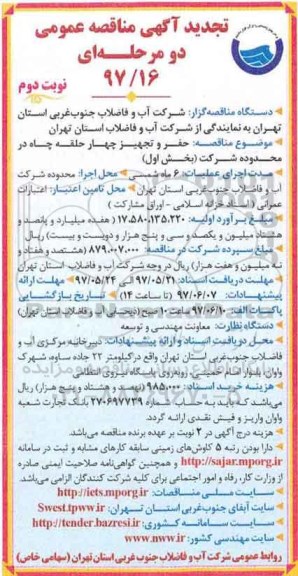 تجدید آگهی مناقصه عمومی
دو مرحله‌ای
۹۷/۱۶
نوبت دوم
دستگاه مناقصه‌گزار: شرکت آب و فاضلاب جنوب‌غربی استان
تهران به نمایندگی از شرکت آب و فاضلاب استان تهران
موضوع مناقصه: حفر و تجهیز چهار حلقه چاه در
محدوده شرکت (بخش اول)
مدت اجرای عملیات: ۶ ماه شمسی محل اجرا: محدوده شرکت
آب و فاضلاب جنوب‌غربی استان تهران محل تامین اعتبار: اعتبارات
عمرانی (اسناد خزانه اسلامی - اوراق مشارکت)
مبلغ برآورد اولیه: ۱۷،۵۸۰،۱۳۵،۲۲۰ (هفده میلیارد و پانصد و
هشتاد میلیون و یکصد و سی و پنج هزار و دویست و بیست) ریال
مبلغ سپرده شرکت در مناقصه: ۸۷۹،۰۰۷،۰۰۰ (هشتصد و هفتاد و
نه میلیون و هفت هزار) ریال در وجه شرکت آب و فاضلاب استان تهران
مهلت دریافت اسناد: ۹۷/۰۵/۲۱ الی ۹۷/۰۵/۲۴ مهلت ارائه
پیشنهادات: ۹۷/۰۶/۰۷ (تا ساعت ۱۴) تاریخ بازگشایی
پاکت الف: ۹۷/۰۶/۱۰ ساعت ۱۰ صبح (دیجیتالی آب و فاضلاب استان تهران)
دستگاه نظارت: معاونت مهندسی و توسعه
محل دریافت اسناد و ارائه پیشنهادات: دبیرخانه مرکزی آب و
فاضلاب جنوب‌غربی استان تهران واقع در کیلومتر ۲۲ جاده ساوه، شهرک
واوان، بلوار امام خمینی، روبروی پاسگاه نیروی انتظامی
هزینه خرید اسناد: ۹۸۵،۰۰۰ (نهصد و هشتاد و پنج هزار) ریال
می‌باشد که باید به حساب شماره ۲۷۰۶۹۷۷۳۹ بانک تجارت شعبه
واوان واریز و فیش نقدی ارائه گردد.
هزینه درج آگهی در ۲ نوبت بر عهده برنده مناقصه می‌باشد.
دارا بودن رتبه ۵ کاوش‌های زمینی سابقه کارهای مشابه و ثبت در سامانه
http://sajar.mporg.ir و همچنین گواهی‌نامه صلاحیت ایمنی صادره
از وزارت کار، رفاه و امور اجتماعی برای کلیه شرکت کنندگان الزامی می‌باشد.
سایت ملی مناقصات: http://iets.mporg.ir
سایت آبفای جنوب‌غربی استان تهران: Swest.tpww.ir
سایت سامانه کشوری: http://tender.bazresi.ir
سایت مهندسی کشور: www.nww.ir
روابط عمومی شرکت آب و فاضلاب جنوب غربی استان تهران (سهامی خاص)